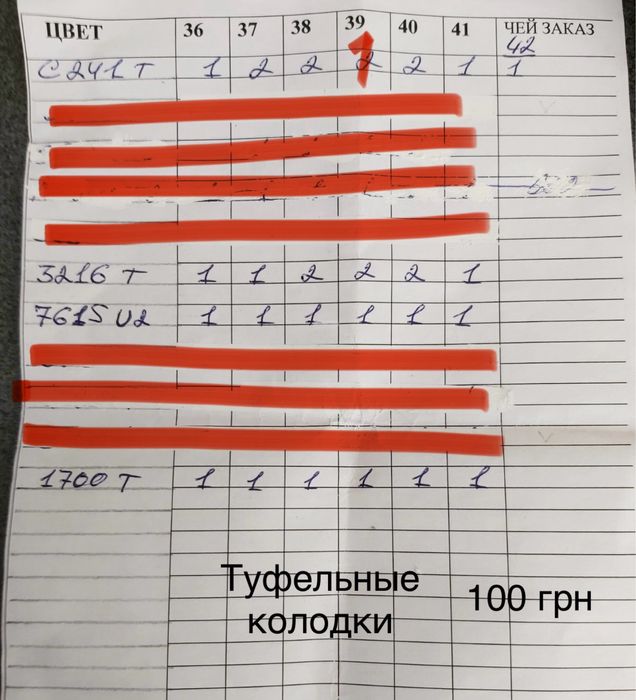 ЦВЕТ 36 37 38 39 40 41 ЧЕЙ ЗАКАЗ
42
С 241 Т 1 2 2 1 2 1 1
3216 Т 1 1 2 2 2 1
7615 U2 1 1 1 1 1 1
1700 Т 1 1 1 1 1 1
Туфельные
колодки
100 грн